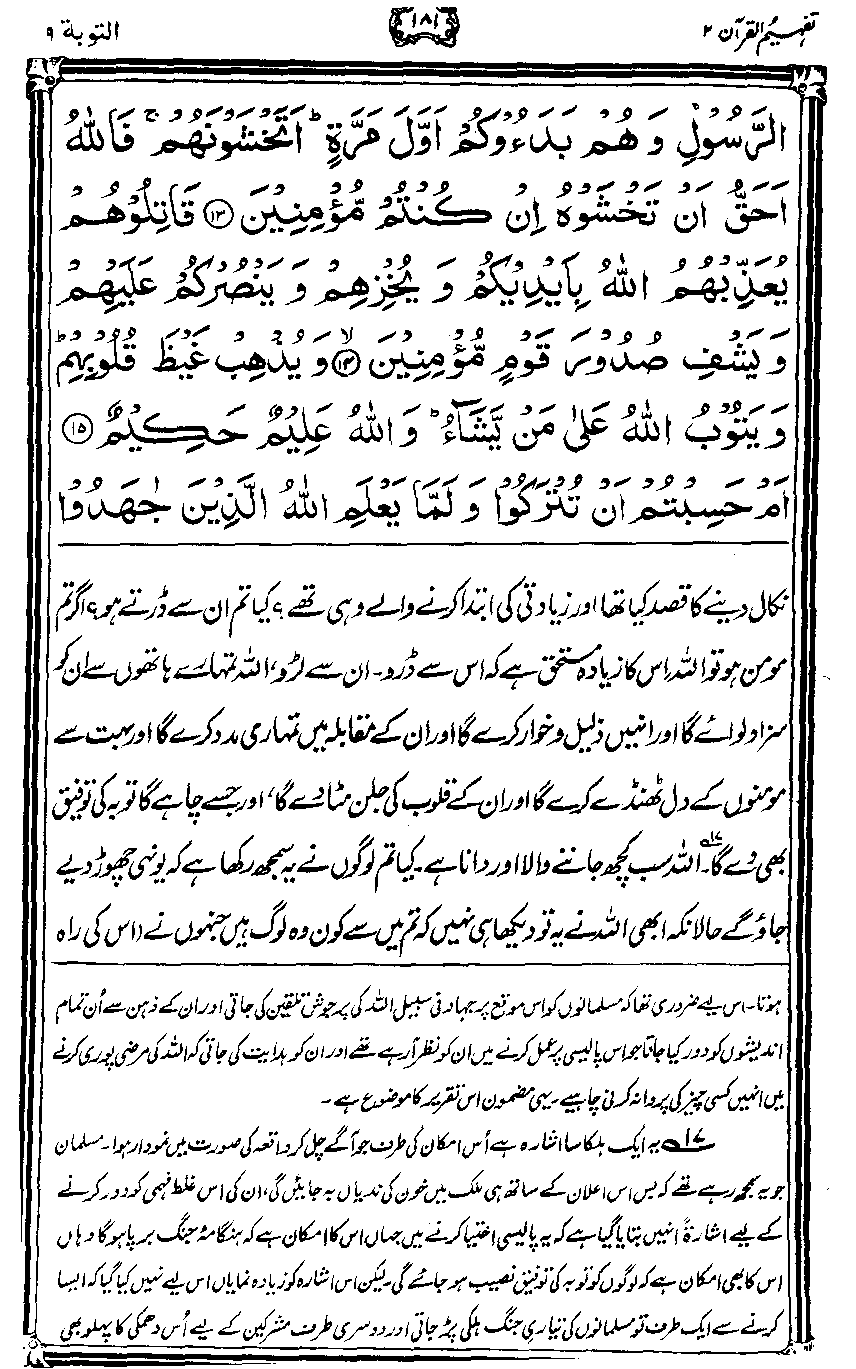 تفہیم القرآن ۲
۱۸۱
التوبۃ ۹
الرَّسُوْلِ وَ هُمْ بَدَءُوْكُمْ اَوَّلَ مَرَّةٍ ؕ اَتَخْشَوْنَهُمْ ۚ فَاللّٰهُ
اَحَقُّ اَنْ تَخْشَوْهُ اِنْ كُنْتُمْ مُّؤْمِنِیْنَ ﴿۱۳﴾ قَاتِلُوْهُمْ
یُعَذِّبْهُمُ اللّٰهُ بِاَیْدِیْكُمْ وَ یُخْزِهِمْ وَ یَنْصُرْكُمْ عَلَیْهِمْ
وَ یَشْفِ صُدُوْرَ قَوْمٍ مُّؤْمِنِیْنَ ﴿۱۴﴾ۙ وَ یُذْهِبْ غَیْظَ قُلُوْبِهِمْ ؕ
وَ یَتُوْبُ اللّٰهُ عَلٰی مَنْ یَّشَآءُ ؕ وَ اللّٰهُ عَلِیْمٌ حَكِیْمٌ ﴿۱۵﴾
اَمْ حَسِبْتُمْ اَنْ تُتْرَكُوْا وَ لَمَّا یَعْلَمِ اللّٰهُ الَّذِیْنَ جٰهَدُوْا
نکال دینے کا قصد کیا تھا اور زیادتی کی ابتدا کرنے والے وہی تھے؟ کیا تم ان سے ڈرتے ہو؟ اگر تم
مومن ہو تو اللہ اس کا زیادہ مستحق ہے کہ اس سے ڈرو۔ ان سے لڑو، اللہ تمہارے ہاتھوں سے ان کو
سزا دلوائے گا اور انہیں ذلیل و خوار کرے گا اور ان کے مقابلہ میں تمہاری مدد کرے گا اور بہت سے
مومنوں کے دل ٹھنڈے کرے گا اور ان کے قلوب کی جلن مٹا دے گا، اور جسے چاہے گا توبہ کی توفیق
بھی دے گا۔۱۷ اللہ سب کچھ جاننے والا اور دانا ہے۔ کیا تم لوگوں نے یہ سمجھ رکھا ہے کہ یونہی چھوڑ دیے
جاؤ گے حالانکہ ابھی اللہ نے یہ تو دیکھا ہی نہیں کہ تم میں سے کون وہ لوگ ہیں جنہوں نے (اس کی راہ
ہوتا۔ اس لیے ضروری تھا کہ مسلمانوں کو اس موقع پر جہاد فی سبیل اللہ کی پرجوش تلقین کی جاتی اور ان کے ذہن سے اُن تمام
اندیشوں کو دور کیا جاتا جو اس پالیسی پر عمل کرنے میں ان کو نظر آ رہے تھے اور ان کو ہدایت کی جاتی کہ اللہ کی مرضی پوری کرنے
میں انہیں کسی چیز کی پروا نہ کرنی چاہیے۔ یہی مضمون اس تقریر کا موضوع ہے۔
۱۷ یہ ایک ہلکا سا اشارہ ہے اُس امکان کی طرف جو آگے چل کر واقعہ کی صورت میں نمودار ہوا۔ مسلمان
جو یہ سمجھ رہے تھے کہ بس اس اعلان کے ساتھ ہی ملک میں خون کی ندیاں بہ جائیں گی، ان کی اس غلط فہمی کو دور کرنے
کے لیے اشارۃً انہیں بتایا گیا ہے کہ یہ پالیسی اختیار کرنے میں جہاں اس کا امکان ہے کہ ہنگامۂ جنگ برپا ہوگا وہاں
اس کا بھی امکان ہے کہ لوگوں کو توبہ کی توفیق نصیب ہو جائے گی۔ لیکن اس اشارہ کو زیادہ نمایاں اس لیے نہیں کیا گیا کہ ایسا
کرنے سے ایک طرف تو مسلمانوں کی تیاریِ جنگ ہلکی پڑ جاتی اور دوسری طرف مشرکین کے لیے اُس دھمکی کا پہلو بھی